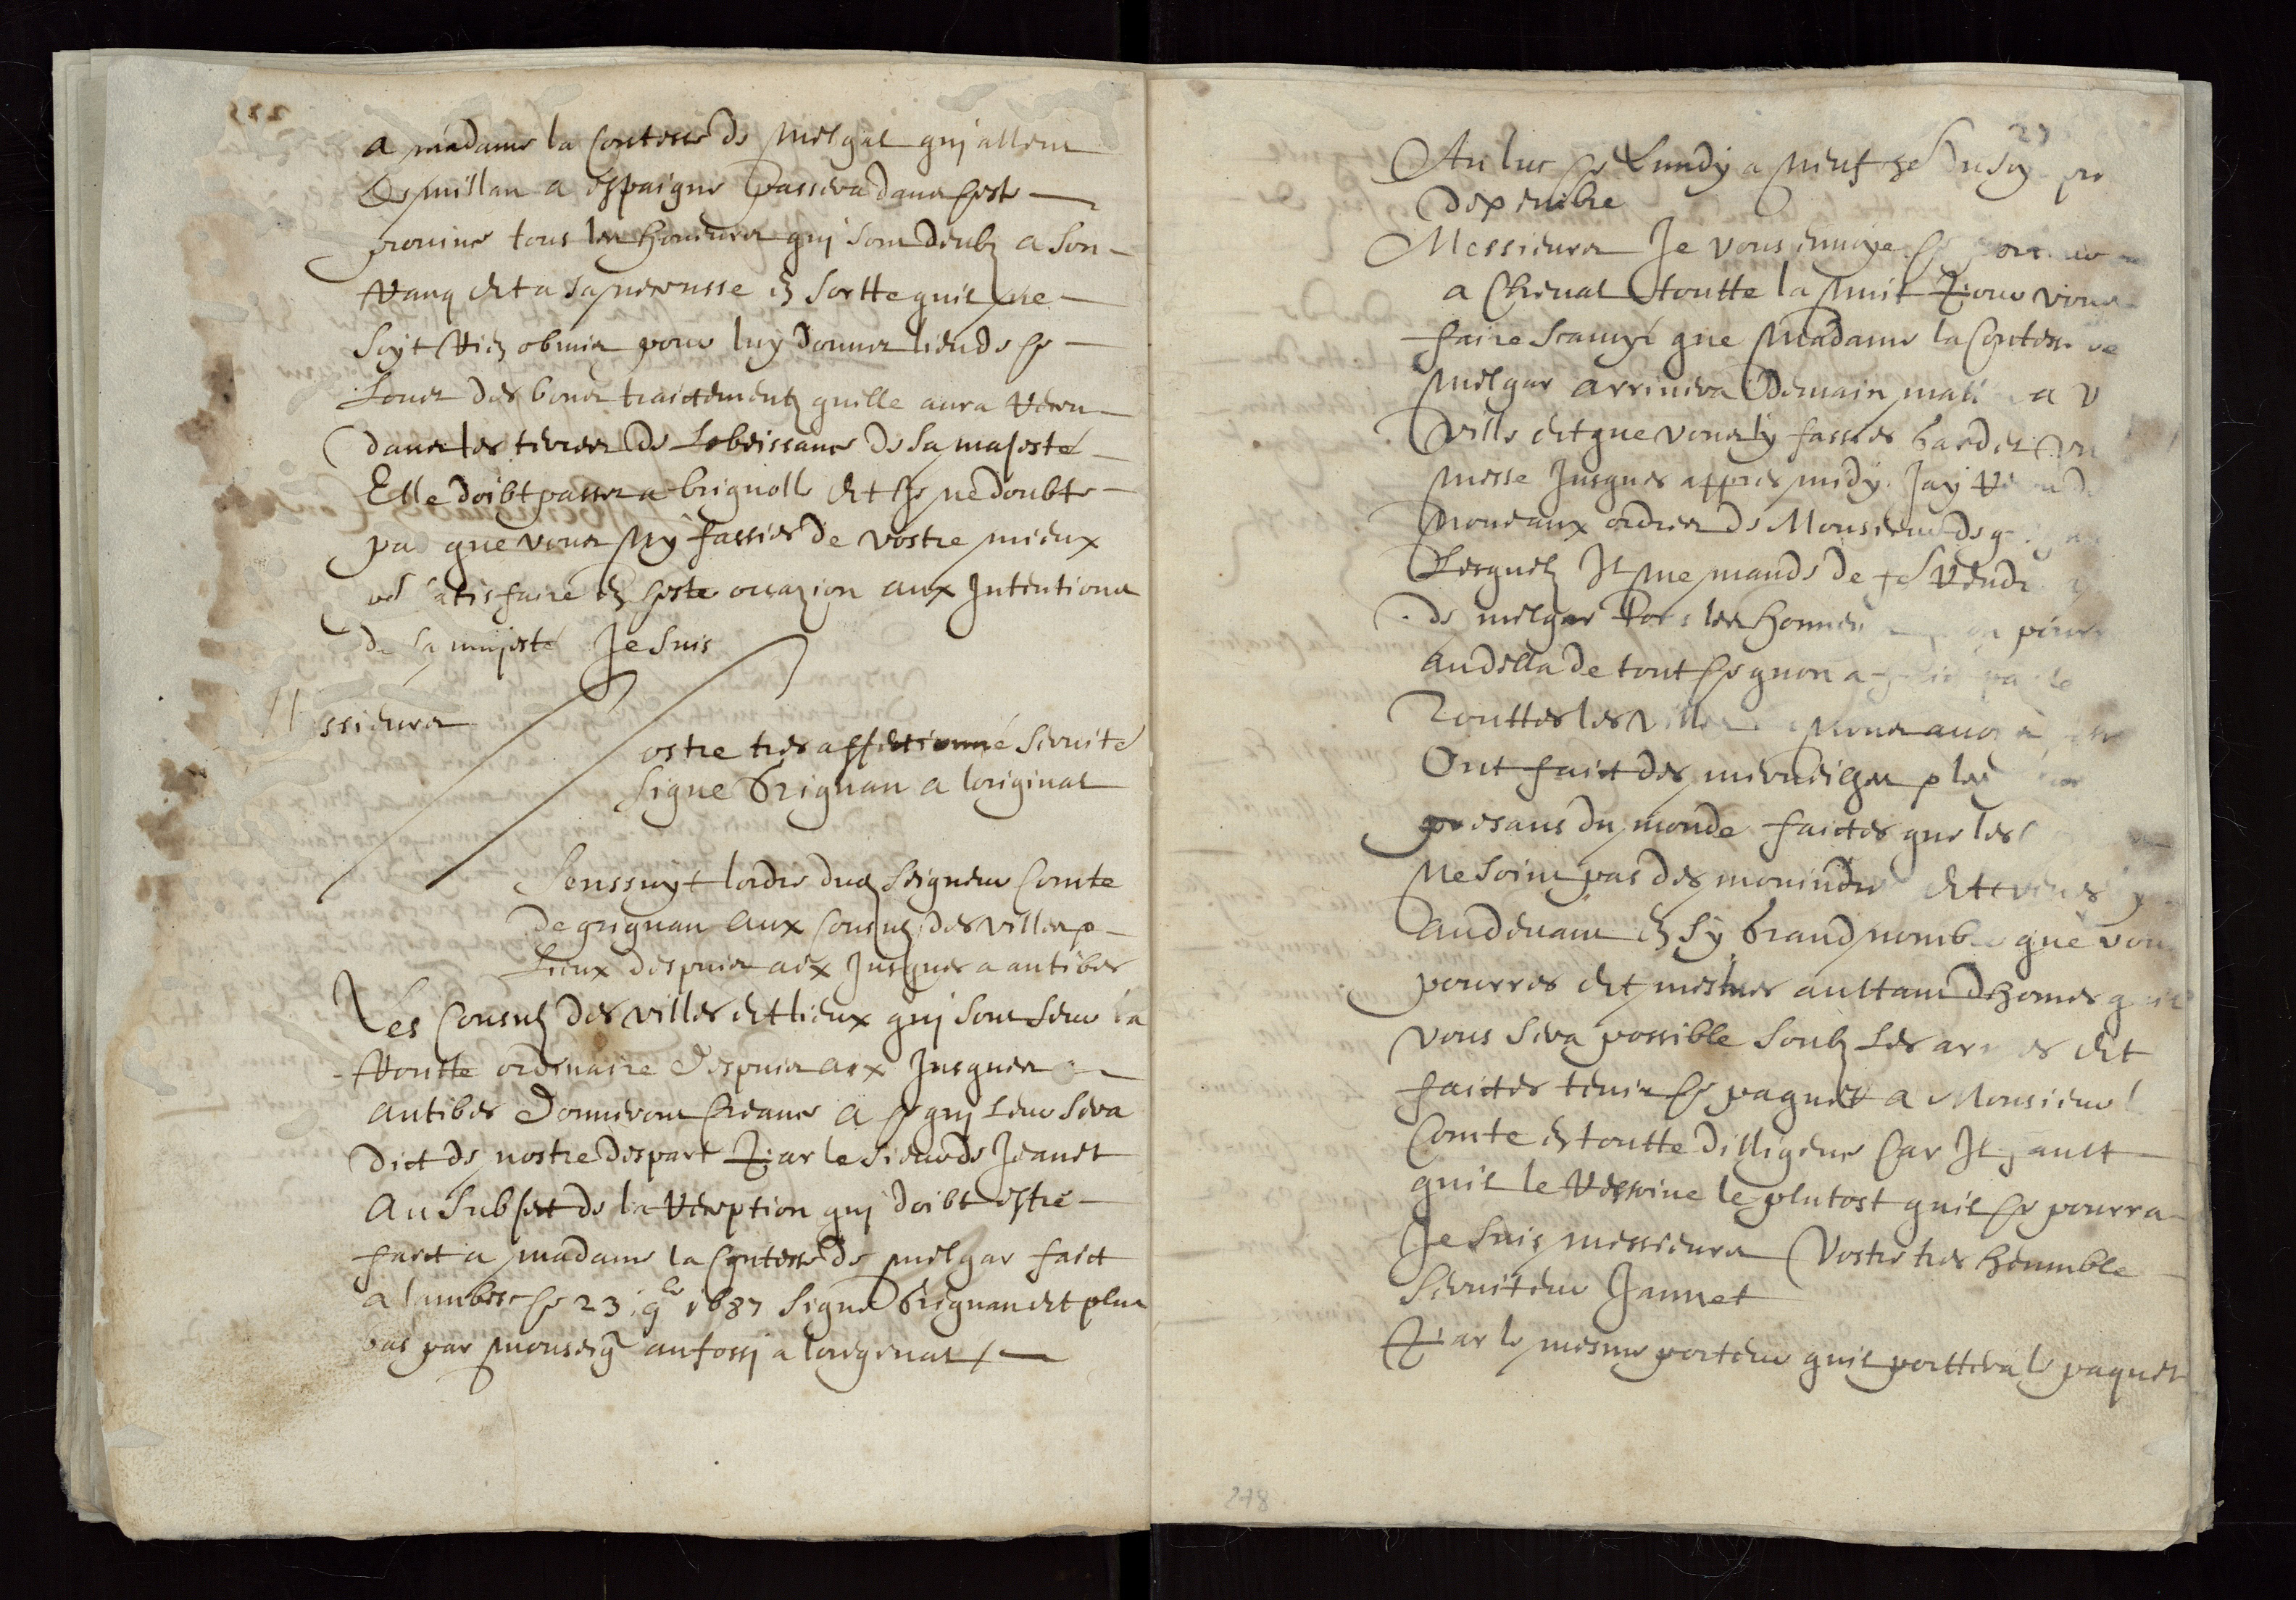 a madame la Contesse de Melgal qui allent
de millan a espaigne passera dans ceste
province tous les honneurs qui sont deubz a son
rang et a sa personne en sortte quil ne
soyt rien obmis pour luy donner lieu de se
louer des bons traictements quelle aura receu
dans les terres de Lobeissance de sa majesté
Elle doibt passer a brignolle et je ne doubte
pas que vous ny fassies de vostre mieux
satisfaire en ceste occazion aux Intentions
de sa majesté Je suis
ssieurs
ostre tres affectionné servite
signe Grignan a loriginal
Senssuyt lordre dud Seigneur Comte
de grignan aux Consulz des villes
Lieux despuis aix jusques a antibes
Les Consulz des villes et lieux qui sont seur la
Routte ordenaire despuis aix jusques
antibes donneront creance a ce qui leur sera
dict de nostre despart par le sieur de Jeanet
au subject de la reception qui doibt estre
faict a madame la Contesse de melgar faict
a lambesc ce 23 9bre 1687 signe Grignan et plus
bas par monseigr anfossi a loreginal
Au luc ce Lundy a neuf
dexenbre
Messieurs Je vous envoye
a cheval toutte la nuit pour vous
faire scavoyr que Madame la Contesse de
Melgar arrivera demain matin a
ville et que vous ly fassies garder
messe jusques appres midy. Jay
nouveaux ordres de Monsieur de
Lesquelz Il me mande de
de melgar tous les honneurs
au della de tout ce quon a
Touttes les villes
Ont fait des merveilhes
presans du monde faictes que les
ne soint pas des mouindres et
au devant en sy Grand nombre que vous
pourres et mesttes aulttant dhomes
vous sera possible soubz Les armes et
faictes tenir ce paquet a Monsieur
Comte en toutte dilligence car Il fault
quil le ressoive le plutost quil ce pourra
Je suis messieurs Vostre tres heumble
serviteur Jannet
Par le mesme porteur quil porttera le paquet
278